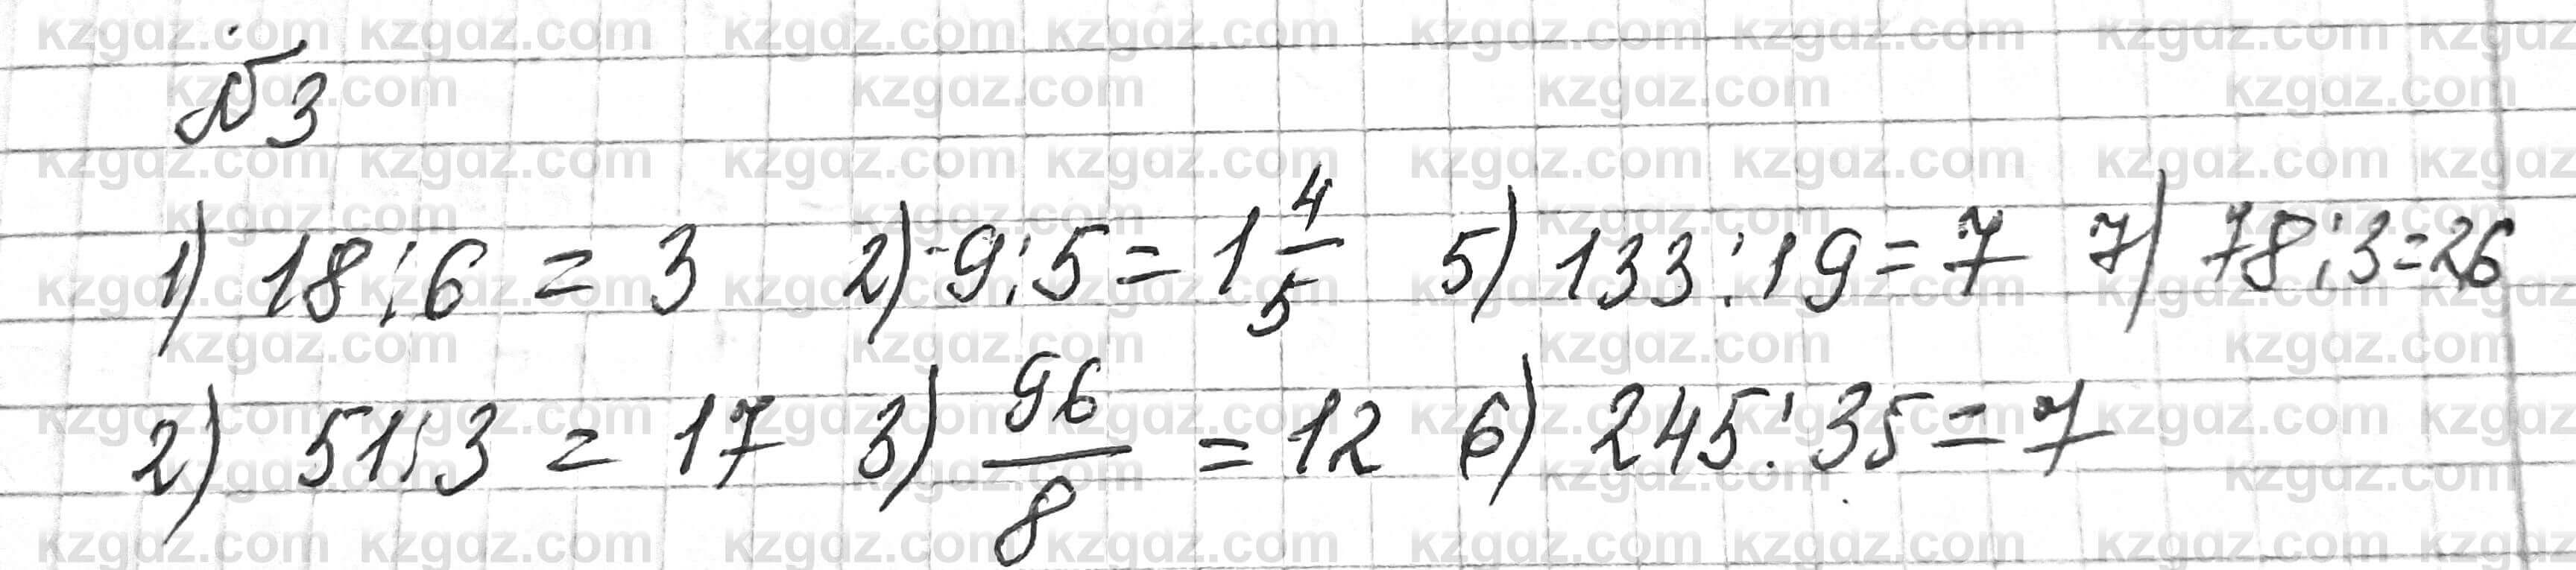 №3
1) 18:6 = 3 2) -9:5 = 1 4/5 5) 133:19 = 7 7) 78:3=26
2) 51:3 = 17 3) 96/8 = 12 6) 245:35 = 7